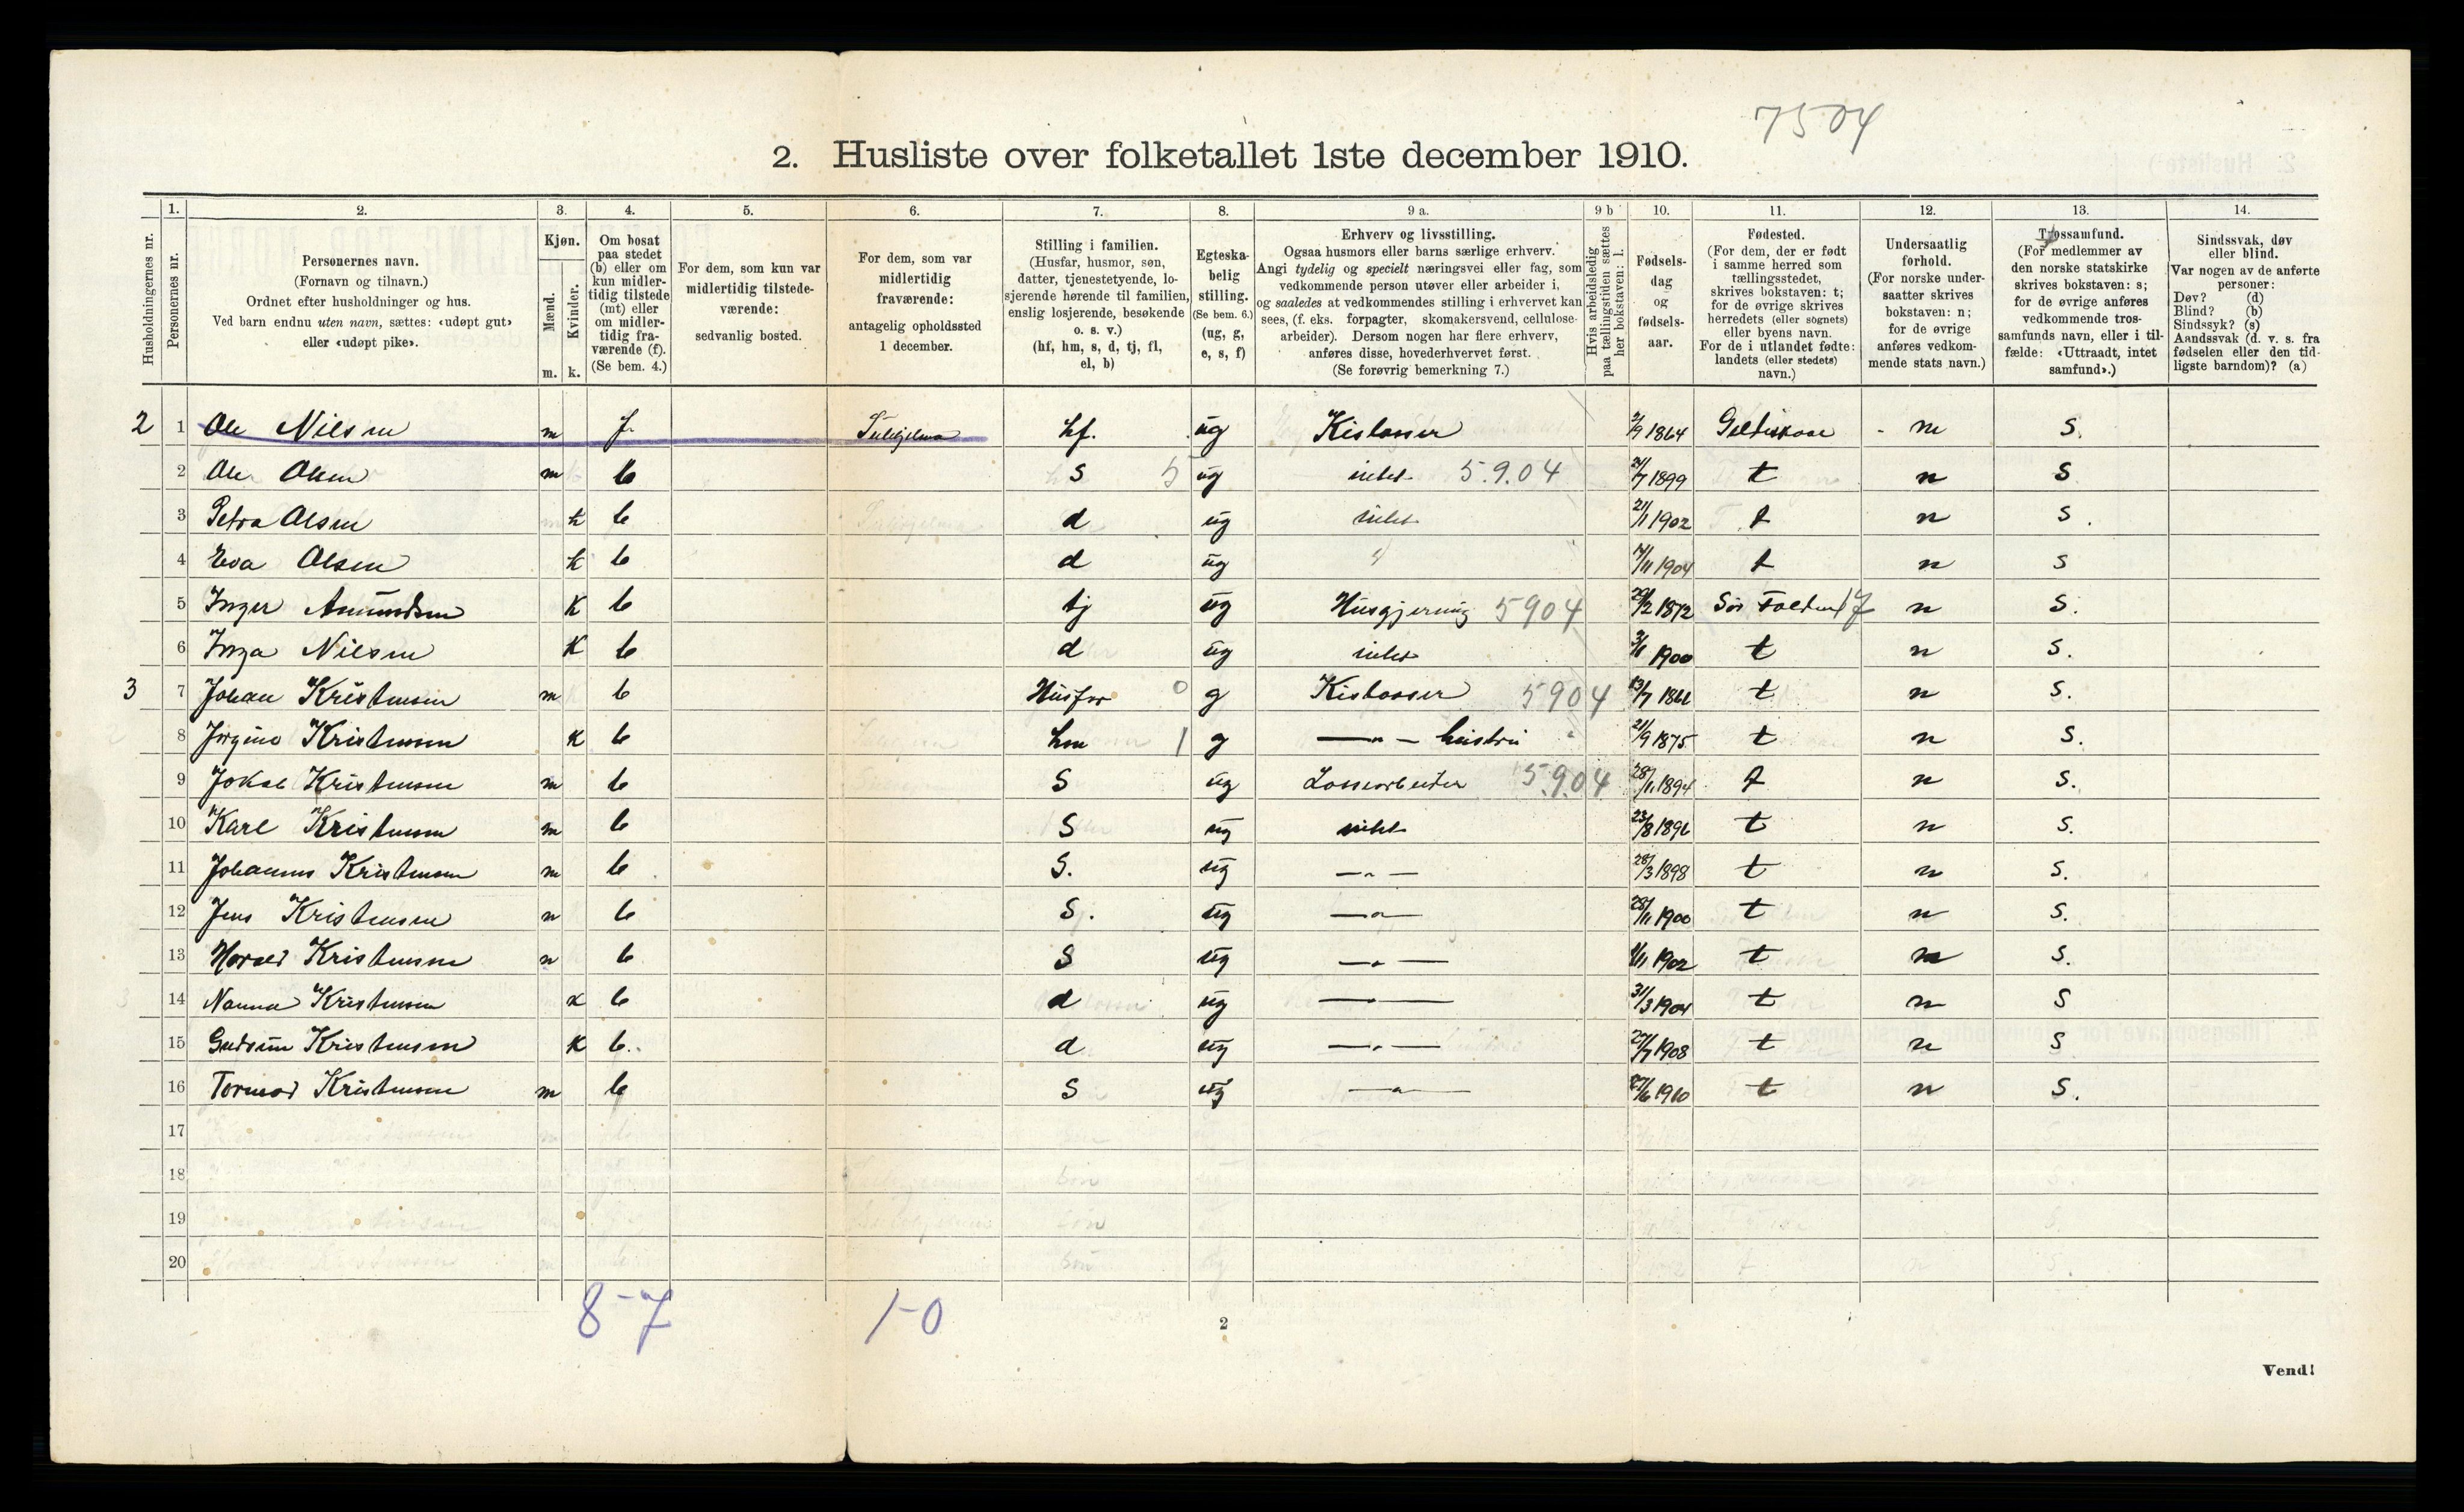 7504
2. Husliste over folketallet 1ste december 1910.
Husholdningernes nr.
1. Personernes nr.
2. Personernes navn. (Fornavn og tilnavn.) Ordnet efter husholdninger og hus. Ved barn endnu uten navn, sættes: «udøpt gut» eller «udøpt pike».
3. Kjøn. Mænd. m. Kvinder. k.
4. Om bosat paa stedet (b) eller om kun midlertidig tilstede (mt) eller om midlertidig fraværende (f). (Se bem. 4.)
5. For dem, som kun var midlertidig tilstedeværende: sedvanlig bosted.
6. For dem, som var midlertidig fraværende: antagelig opholdssted 1 december.
7. Stilling i familien. (Husfar, husmor, søn, datter, tjenestetyende, losjerende hørende til familien, enslig losjerende, besøkende o. s. v.) (hf, hm, s, d, tj, fl, el, b)
8. Egteskabelig stilling. (Se bem. 6.) (ug, g, e, s, f)
9 a. Erhverv og livsstilling. Ogsaa husmors eller barns særlige erhverv. Angi tydelig og specielt næringsvei eller fag, som vedkommende person utøver eller arbeider i, og saaledes at vedkommendes stilling i erhvervet kan sees, (f. eks. forpagter, skomakersvend, cellulosearbeider). Dersom nogen har flere erhverv, anføres disse, hovederhvervet først. (Se forøvrig bemerkning 7.)
9 b Hvis arbeidsledig paa tællingstiden sættes her bokstaven: l.
10. Fødselsdag og fødselsaar.
11. Fødested. (For dem, der er født i samme herred som tællingsstedet, skrives bokstaven: t; for de øvrige skrives herredets (eller sognets) eller byens navn. For de i utlandet fødte: landets (eller stedets) navn.)
12. Undersaatlig forhold. (For norske undersaatter skrives bokstaven: n; for de øvrige anføres vedkommende stats navn.)
13. Trossamfund. (For medlemmer av den norske statskirke skrives bokstaven: s; for de øvrige anføres vedkommende trossamfunds navn, eller i tilfælde: «Uttraadt, intet samfund».)
14. Sindssvak, døv eller blind. Var nogen av de anførte personer: Døv? (d) Blind? (b) Sindssyk? (s) Aandssvak (d. v. s. fra fødselen eller den tidligste barndom)? (a)
2 1 Ole Nilsen m f. hf. ug 2/9 1864 n S.
2 Ole Olsen m b S 5 ug intet 5.9.04 1899 t n S
3 Petra Olsen k b d ug intet 21/1 1902 t n S.
4 Eva Olsen k b d ug " 1904 t n S
5 Inger Amundsen K b tj ug Husgjerning 5904 1872 Sør Folden 17 n S.
6 Inga Nilsen K b d ug intet 1900 t n S.
3 7 Johan Kristensen m b Husfar 0 g 5904 13/7 t n S.
8 Jørgine Kristensen K b hm 1 g —„— hustru 21/9 1875 t n S.
9 Jakob Kristensen m b S ug Lossearbeider 5.9.04 1894 t n S.
10 Karl Kristensen m b S ug intet 23/8 1896 t n S.
11 Johannes Kristensen m b S. ug —„— 28/3 1898 t n S.
12 Jens Kristensen m b S. ug —„— 28/11 1900 t n S.
13 Harald Kristensen m b S ug —„— 1902 t n S.
14 Nanna Kristensen k b d ug —„— 31/3 1904 t n S
15 Gudrun Kristensen K b. d ug —„— 27/7 1908 t n S
16 Tormod Kristensen m b S ug —„— 27/6 1910 t n S.
17
18
19
20
8-7 1-0
2
Vend!